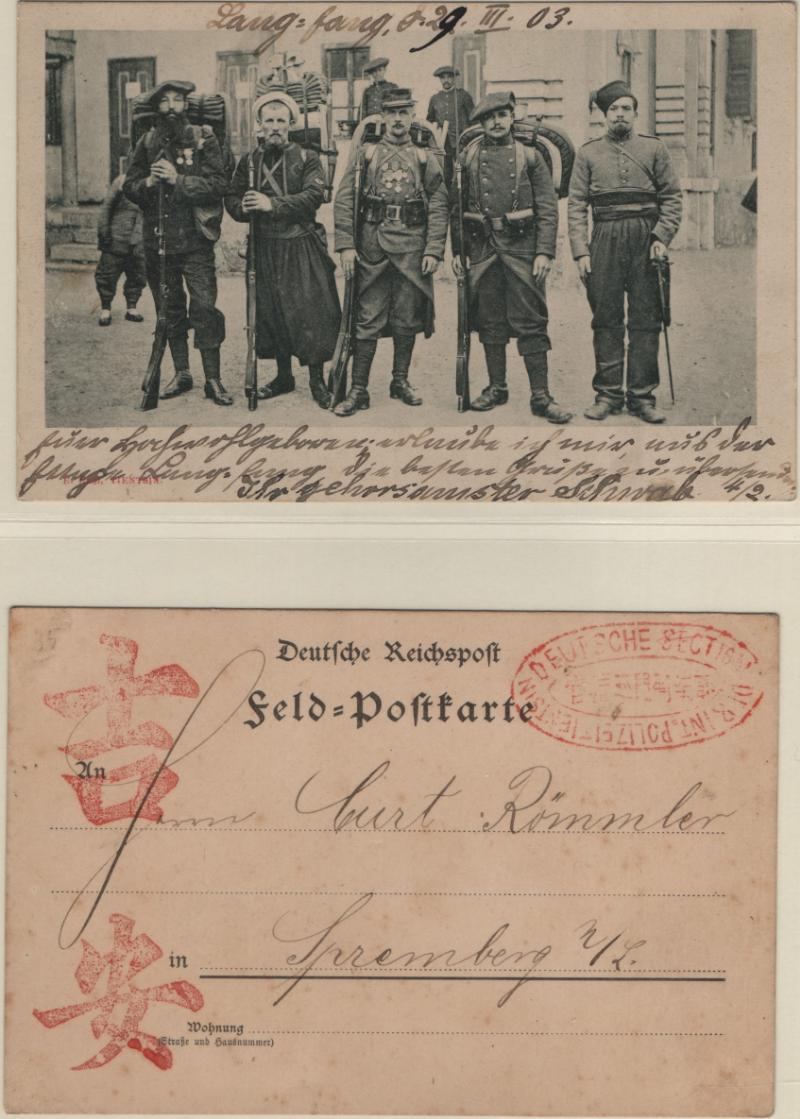 Lang=fang, d. 29. III. 03.
Euer Hochwohlgeboren erlaube ich mir, aus der
Lang=fang, die besten Grüße zu übersenden
TIENTSIN.
Ihr gehorsamster Schwab 4/2.
35
Deutsche Reichspost
DEUTSCHE SECTION DER INT. POLIZEI TIENTSIN
Feld=Postkarte
吉
安
An
Herrn Curt Römmler
in Spremberg n/L.
Wohnung
(Straße und Hausnummer)